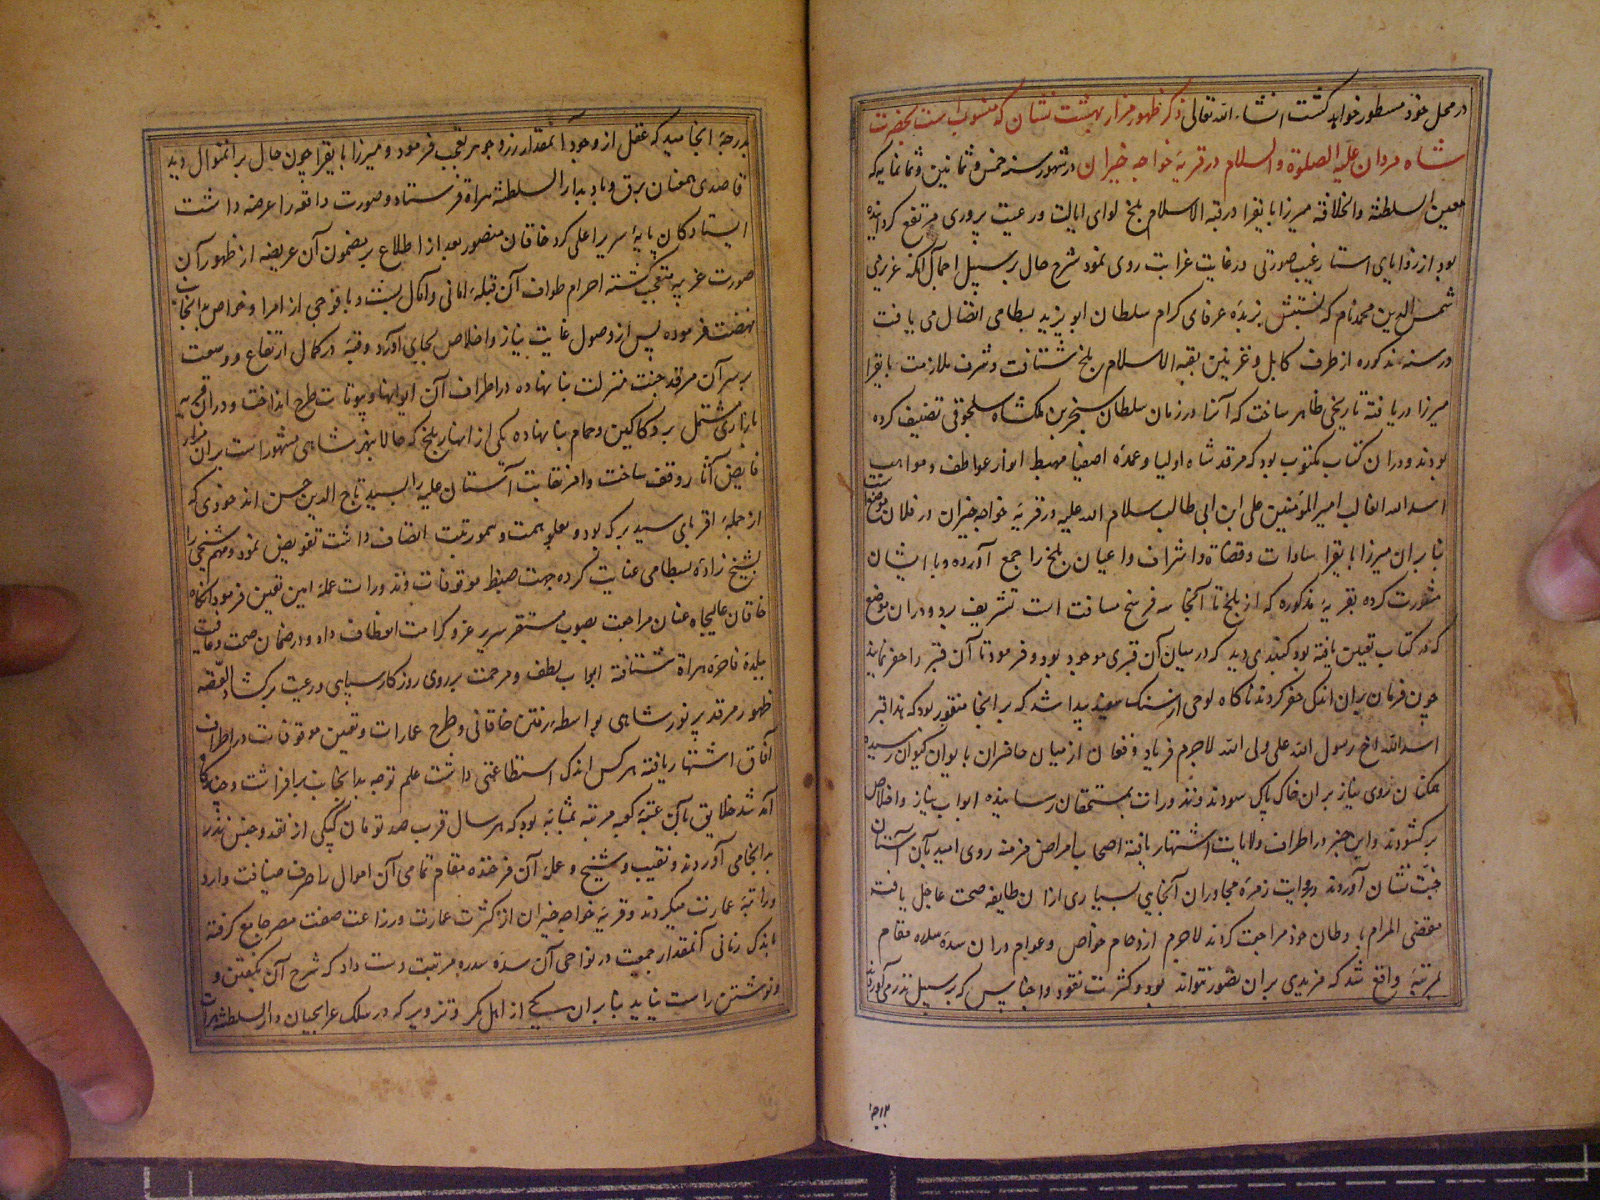 در محل خود مسطور خواهد گشت انشاء الله تعالی ذکر ظهور مزار بهشت نشان که منسوب است بحضرت
شاه مردان علیه الصلوة والسلام در قریهٔ خواجه خیران در شهور سنه خمس و ثمانین و ثمانمایه که
معین السلطنة والخلافة میرزا بایقرا در قبة الاسلام بلخ لوای ایالت و رعیت پروری مرتفع کردانیده
بود از زوایای استار غیب صورتی در غایت غرابت روی نمود شرح حال بر سبیل اجمال آنکه عزیزی
شمس الدین محمد نام که نسبتش بزبدهٔ عرفای کرام سلطان ابو یزید بسطامی اتصال می یافت
در سنه مذکوره از طرف کابل و غزنین بقبة الاسلام بلخ شتافت و شرف ملازمت بایقرا
میرزا دریافته تاریخی ظاهر ساخت که آنرا در زمان سلطان سنجر بن ملکشاه سلجوقی تصنیف کرده
بودند و در ان کتاب مکتوب بود که مرقد شاه اولیا و عمدهٔ اصفیا مهبط انوار عواطف و مواهب
اسد الله الغالب امیر المؤمنین علی ابن ابی طالب سلام الله علیه در قریهٔ خواجه خیران در فلان موضع است
بنابر ان میرزا بایقرا سادات و قضاة و اشراف و اعیان بلخ را جمع آورده و با ایشان
مشورت کرده بقریهٔ مذکوره که از بلخ تا آنجا سه فرسخ مسافت است تشریف برد و در ان موضع
که در کتاب تعیین یافته بود کنبدی دید که در میان آن قبری موجود بود و فرمود تا آن قبر را حفر نمایند
چون فرمان بران اندکی حفر کردند ناکاه لوحی از سنک سفید پیدا شد که بر انجا منقور بود که هذا قبر
اسد الله اخ رسول الله علی ولی الله لاجرم فریاد و فغان از میان حاضران بایوان کیوان رسیده
همکنان روی نیاز بر ان خاک پاک سودند و نذورات بمستحقان رسانیده ابواب نیاز و اخلاص
برکشودند و این خبر در اطراف ولایات اشتهار یافته اصحاب امراض مزمنه روی امید بآن آستان
جنت نشان آوردند و بروایت زمرهٔ مجاوران آنجایی بسیاری از ان طایفه صحت عاجل یافته
مقضی المرام باوطان خود مراجعت کردند لاجرم ازدحام خواص و عوام در ان سدهٔ سدره مقام
بمرتبهٔ واقع شد که مزیدی بر ان تصور نتواند بود و کثرت نقود و اجناس که بر سبیل نذر می آوردند
بدرجهٔ
بدرجهٔ انجامید که عقل از وجود آنمقدار زر و جوهر تعجب فرمود و میرزا بایقرا چون حال بر اینمنوال دید
قاصدی همعنان برق و باد بدار السلطنهٔ هراة فرستاد و صورت واقعه را عرضه داشت
ایستادکان پایهٔ سریر اعلی کرد خاقان منصور بعد از اطلاع بر مضمون آن عریضه از ظهور آن
صورت غریبه متعجب کشته احرام طواف آن قبلهٔ امانی و آمال بست و با فوجی از امرا و خواص بدانجانب
نهضت فرموده پس از وصول غایت نیاز و اخلاص بجای آورد و قبهٔ در کمال ارتفاع و وسعت
بر سر آن مرقد جنت منزلت بنا نهاده در اطراف آن ایوانها و بیوتات طرح انداخت و در ان قریه
بازاری مشتمل بر دکاکین و حمام بنا نهاده یکی از انهار بلخ که حالا بنهر شاهی مشهور است بر ان مزار
فایض آثار وقف ساخت و امر نقابت آستان علیه را بسید تاج الدین حسن اندخودی که
از جملهٔ اقربای سید برکه بود و بعلو همت و سمو رتبت اتصاف داشت تفویض نمود و مهم شیخی را
بشیخ زادهٔ بسطامی عنایت کرده جهت ضبط موقوفات و نذورات عملهٔ امین تعیین فرمود آنکاه
خاقان عالیجاه عنان مراجعت بصوب مستقر سریر عز و کرامت انعطاف داد و در ضمان صحت و عافیت
ببلدهٔ فاخرهٔ هراة شتافته ابواب لطف و مرحمت بر روی روزکار سپاهی و رعیت برکشاد القصه
ظهور مرقد پر نور شاهی بواسطهٔ رفتن خاقانی و طرح عمارات و تعیین موقوفات در اطراف
آفاق اشتهار یافته هر کس اندک استطاعتی داشت علم توجه بدانجانب برافراشت و چندان
آمد شد خلایق بآن عتبهٔ کعبه مرتبه بمثابهٔ بود که هر سال قرب صد تومان کپکی از نقد و جنس نذر
بر انجا می آوردند و نقیب و شیخ و عملهٔ آن فرخنده مقام تمامی آن اموال را صرف ضیافت وارد
و راتبه و عمارت میکردند و قریهٔ خواجه خیران از کثرت عمارت و زراعت صفت مصر جامع کرفته
باندک زمانی آنمقدار جمعیت در نواحی آن سدهٔ سدره مرتبت دست داد که شرح آن بکفتن و
و نوشتن راست نیاید بنابر ان یکی از اهل مکر و تزویر که در سلک عرابجیان دار السلطنهٔ هرات